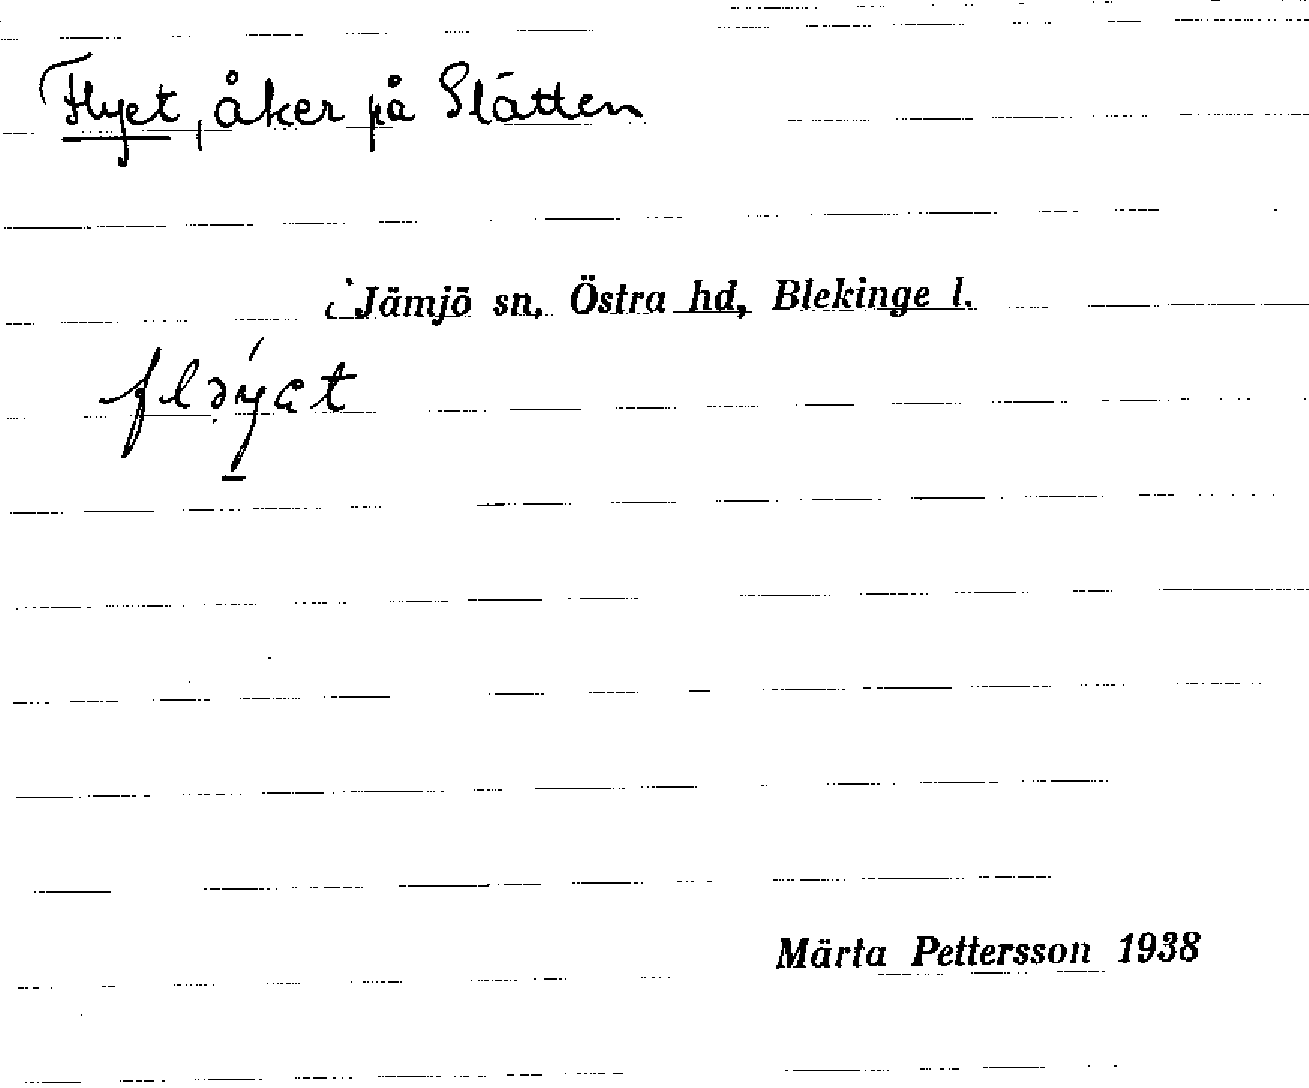 Flyet, åker på Slätten
i Jämjö sn, Östra hd, Blekinge l.
fləýat
Märta Pettersson 1938